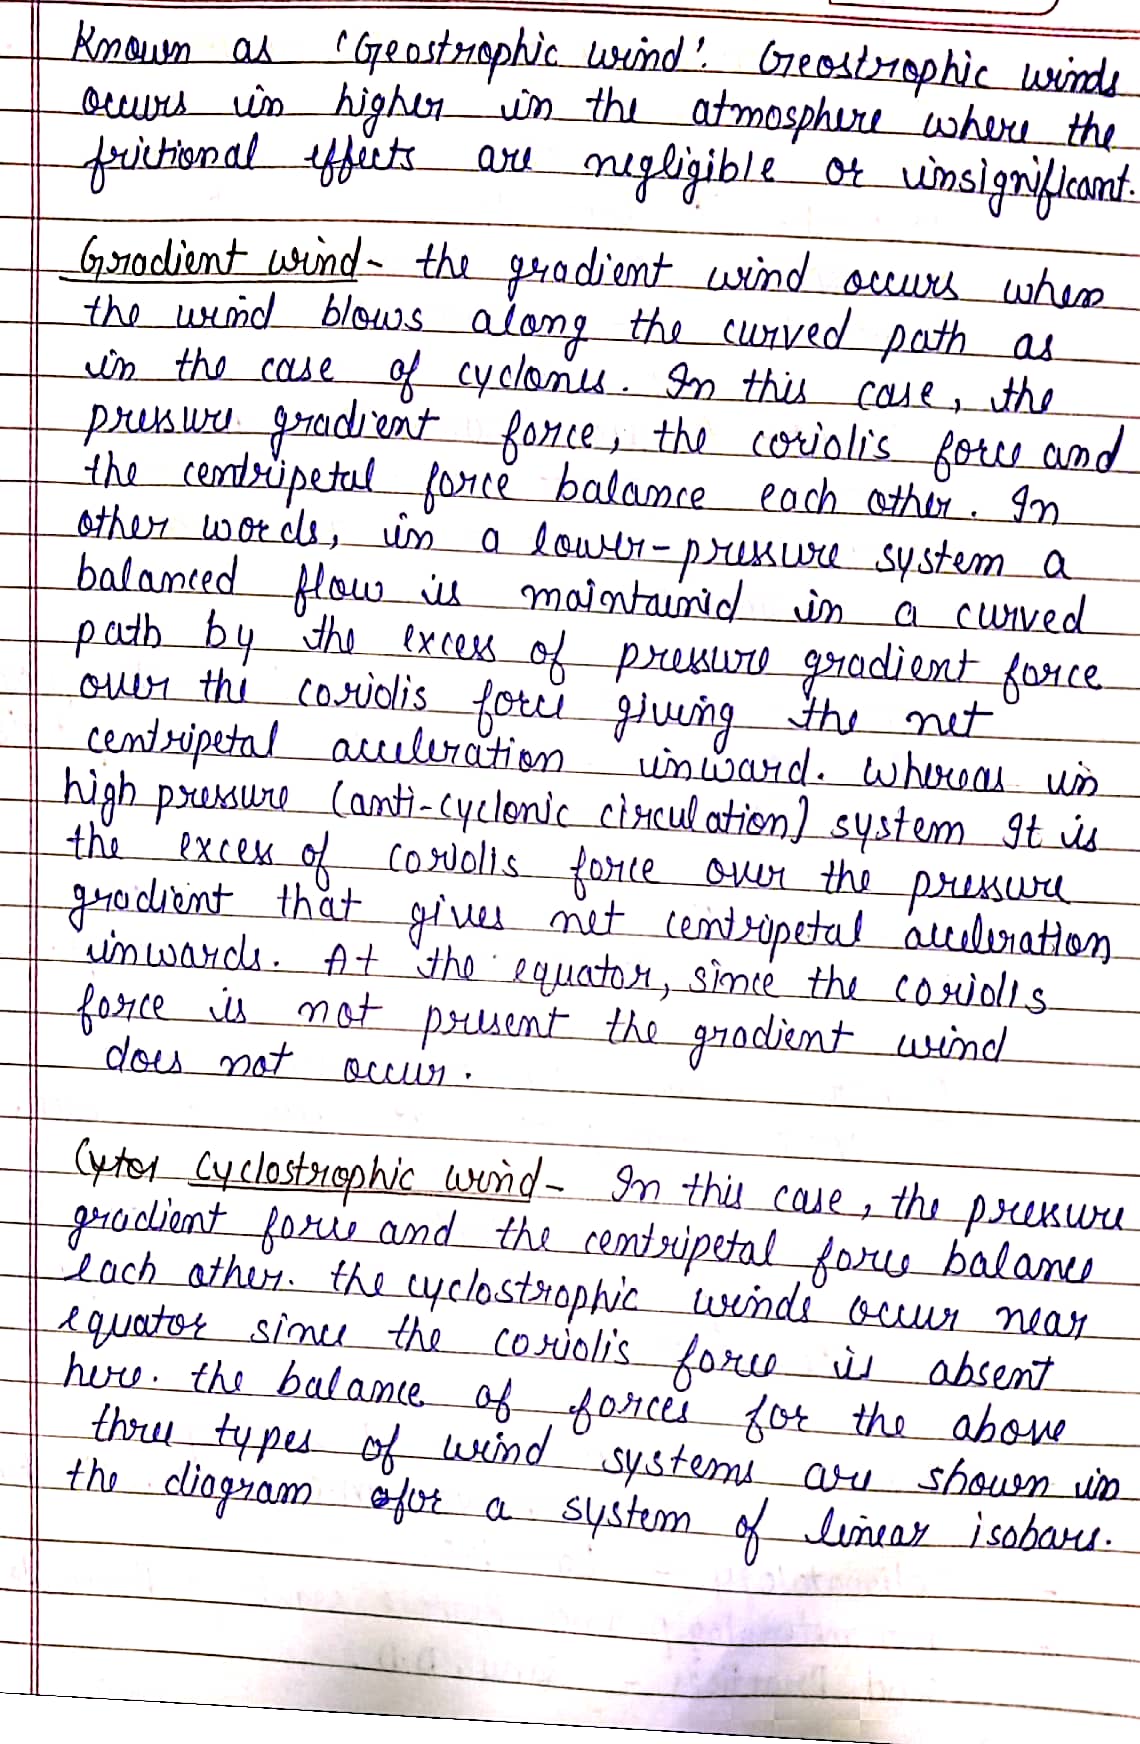 Known as 'Geostrophic wind'. Geostrophic winds
occurs in higher in the atmosphere where the
frictional effects are negligible or insignificant.
Gradient wind - the gradient wind occurs when
the wind blows along the curved path as
in the case of cyclones. In this case, the
pressure gradient force, the coriolis force and
the centripetal force balance each other. In
other words, in a lower-pressure system a
balanced flow is maintained in a curved
path by the excess of pressure gradient force
over the coriolis force giving the net
centripetal acceleration inward. Whereas in
high pressure (anti-cyclonic circulation) system It is
the excess of coriolis force over the pressure
gradient that gives net centripetal acceleration
inwards. At the equator, since the coriolis
force is not present the gradient wind
does not occur.
Cyclostrophic wind - In this case, the pressure
gradient force and the centripetal force balance
each other. the cyclostrophic winds occur near
equator since the coriolis force is absent
here. the balance of forces for the above
three types of wind systems are shown in
the diagram for a system of linear isobars.